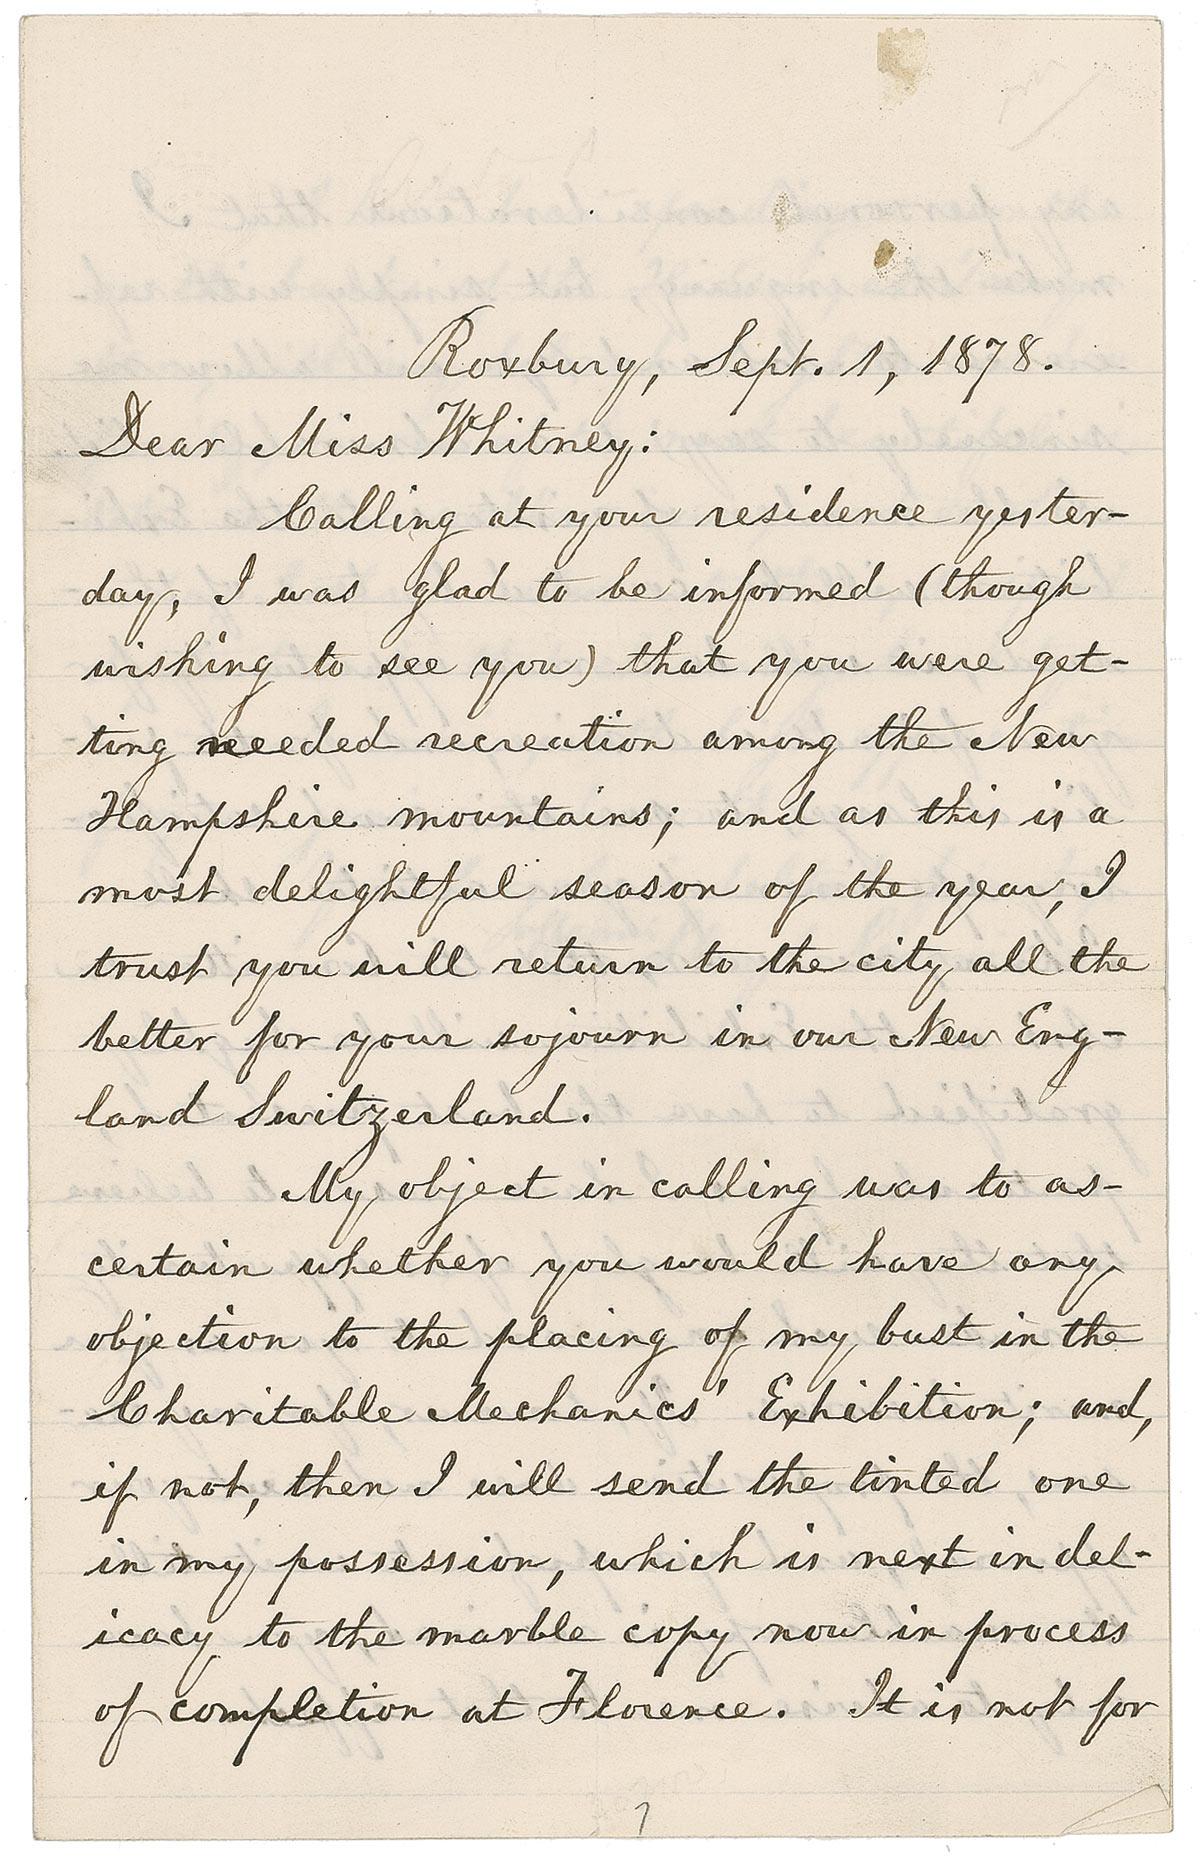 Roxbury, Sept. 1, 1878.
Dear Miss Whitney:
Calling at your residence yester-
day, I was glad to be informed (though
wishing to see you) that you were get-
ting needed recreation among the New
Hampshire mountains; and as this is a
most delightful season of the year, I
trust you will return to the city all the
better for your sojourn in our New Eng-
land Switzerland.
My object in calling was to as-
certain whether you would have any
objection to the placing of my bust in the
Charitable Mechanics' Exhibition; and,
if not, then I will send the tinted one
in my possession, which is next in del-
icacy to the marble copy now in process
of completion at Florence. It is not for